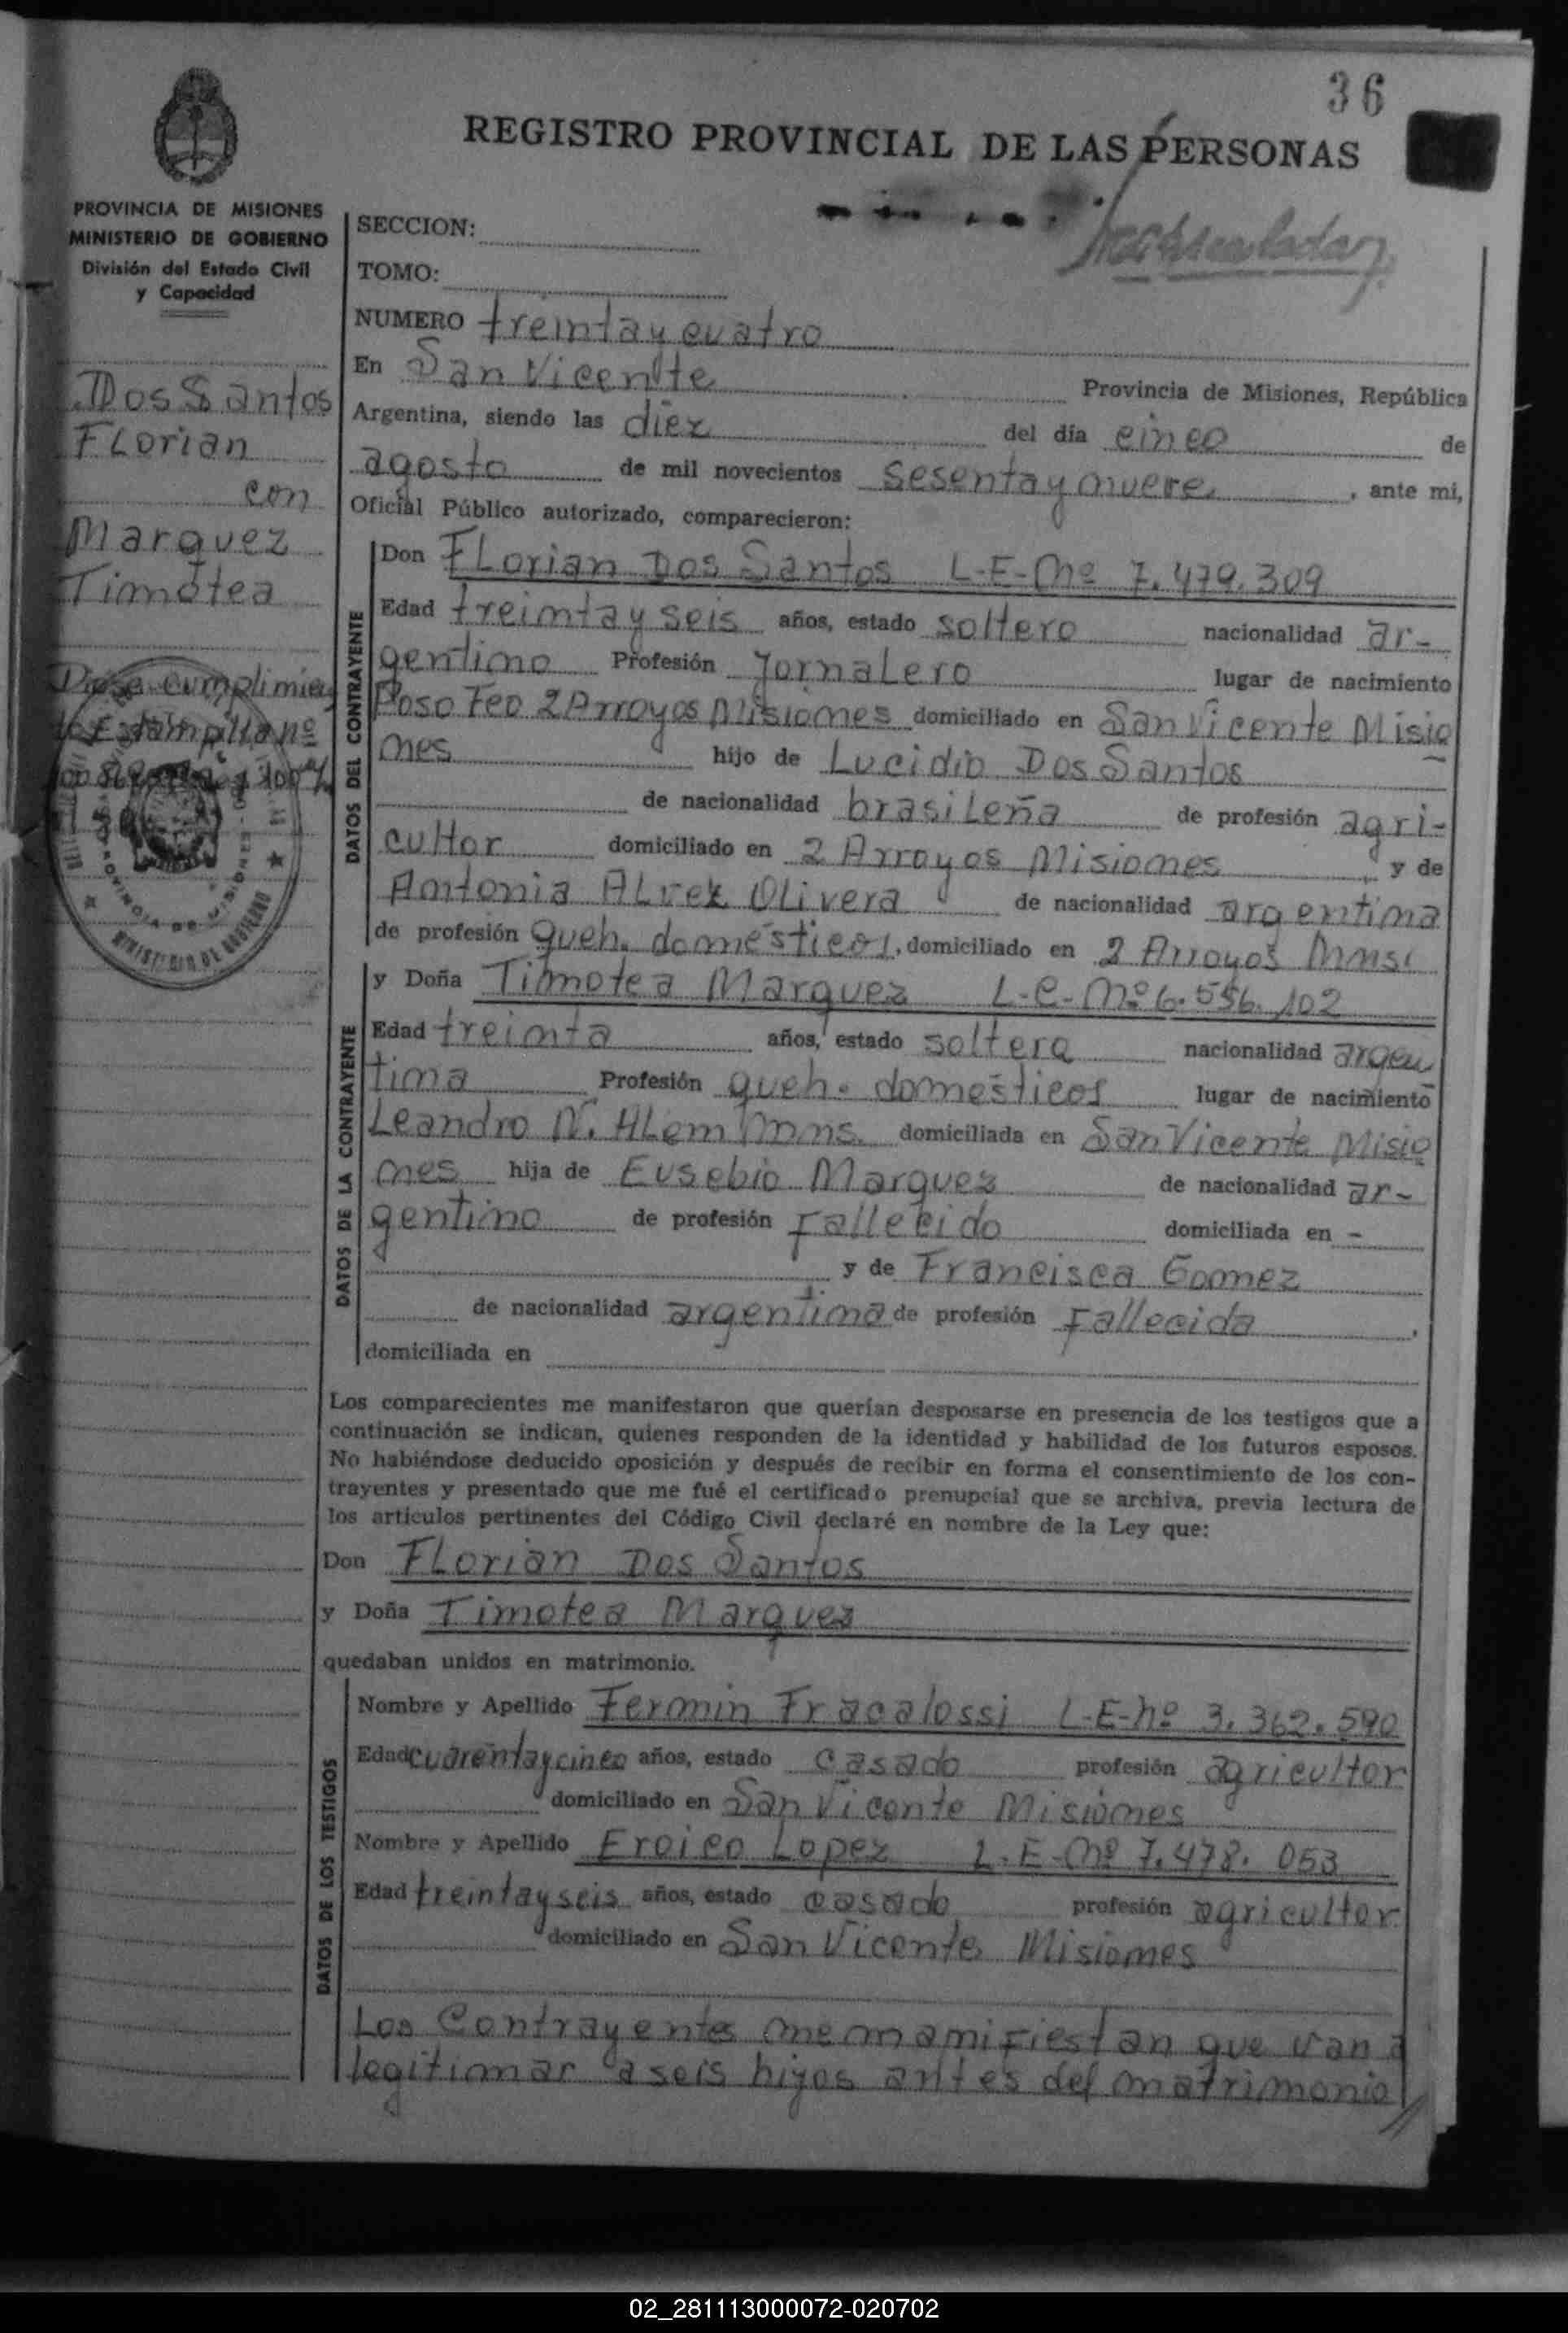 36
REGISTRO PROVINCIAL DE LAS PERSONAS
PROVINCIA DE MISIONES
MINISTERIO DE GOBIERNO
División del Estado Civil
y Capacidad
Dos Santos
Florian
con
Marquez
Timotea
Dióse cumplimien
to Estampilla nº
PROVINCIA DE MISIONES
MINISTERIO DE GOBIERNO
SECCION:
TOMO:
NUMERO treinta y cuatro
En San Vicente Provincia de Misiones, República
Argentina, siendo las diez del día cinco de
agosto de mil novecientos sesenta y nueve, ante mi,
Oficial Público autorizado, comparecieron:
DATOS DEL CONTRAYENTE
Don Florian Dos Santos L-E-Nº 7.479.309
Edad treinta y seis años, estado soltero nacionalidad ar-
gentino Profesión Jornalero lugar de nacimiento
Poso Feo 2 Arroyos Misiones domiciliado en San Vicente Misio
nes hijo de Lucidio Dos Santos
de nacionalidad brasileña de profesión agri-
cultor domiciliado en 2 Arroyos Misiones y de
Antonia Alvez Olivera de nacionalidad argentina
de profesión queh. domésticos, domiciliado en 2 Arroyos Mnsi
DATOS DE LA CONTRAYENTE
y Doña Timotea Marquez L-C-Nº 6.556.102
Edad treinta años, estado soltera nacionalidad argen
tina Profesión queh. domésticos lugar de nacimiento
Leandro N. Alem Mns. domiciliada en San Vicente Misio
nes hija de Eusebio Marquez de nacionalidad ar-
gentino de profesión fallecido domiciliada en -
y de Francisca Gomez
de nacionalidad argentina de profesión fallecida,
domiciliada en
Los comparecientes me manifestaron que querían desposarse en presencia de los testigos que a
continuación se indican, quienes responden de la identidad y habilidad de los futuros esposos.
No habiéndose deducido oposición y después de recibir en forma el consentimiento de los con-
trayentes y presentado que me fué el certificado prenupcial que se archiva, previa lectura de
los artículos pertinentes del Código Civil declaré en nombre de la Ley que:
Don Florian Dos Santos
y Doña Timotea Marquez
quedaban unidos en matrimonio.
DATOS DE LOS TESTIGOS
Nombre y Apellido Fermin Fracalossi L-E-nº 3.362.590
Edad cuarenta y cinco años, estado casado profesión agricultor
domiciliado en San Vicente Misiones
Nombre y Apellido Eroico Lopez L.E-Nº 7.478.053
Edad treinta y seis años, estado casado profesión agricultor
domiciliado en San Vicente Misiones
Los Contrayentes me manifiestan que van a
legitimar a seis hijos antes del matrimonio//
02_281113000072-020702